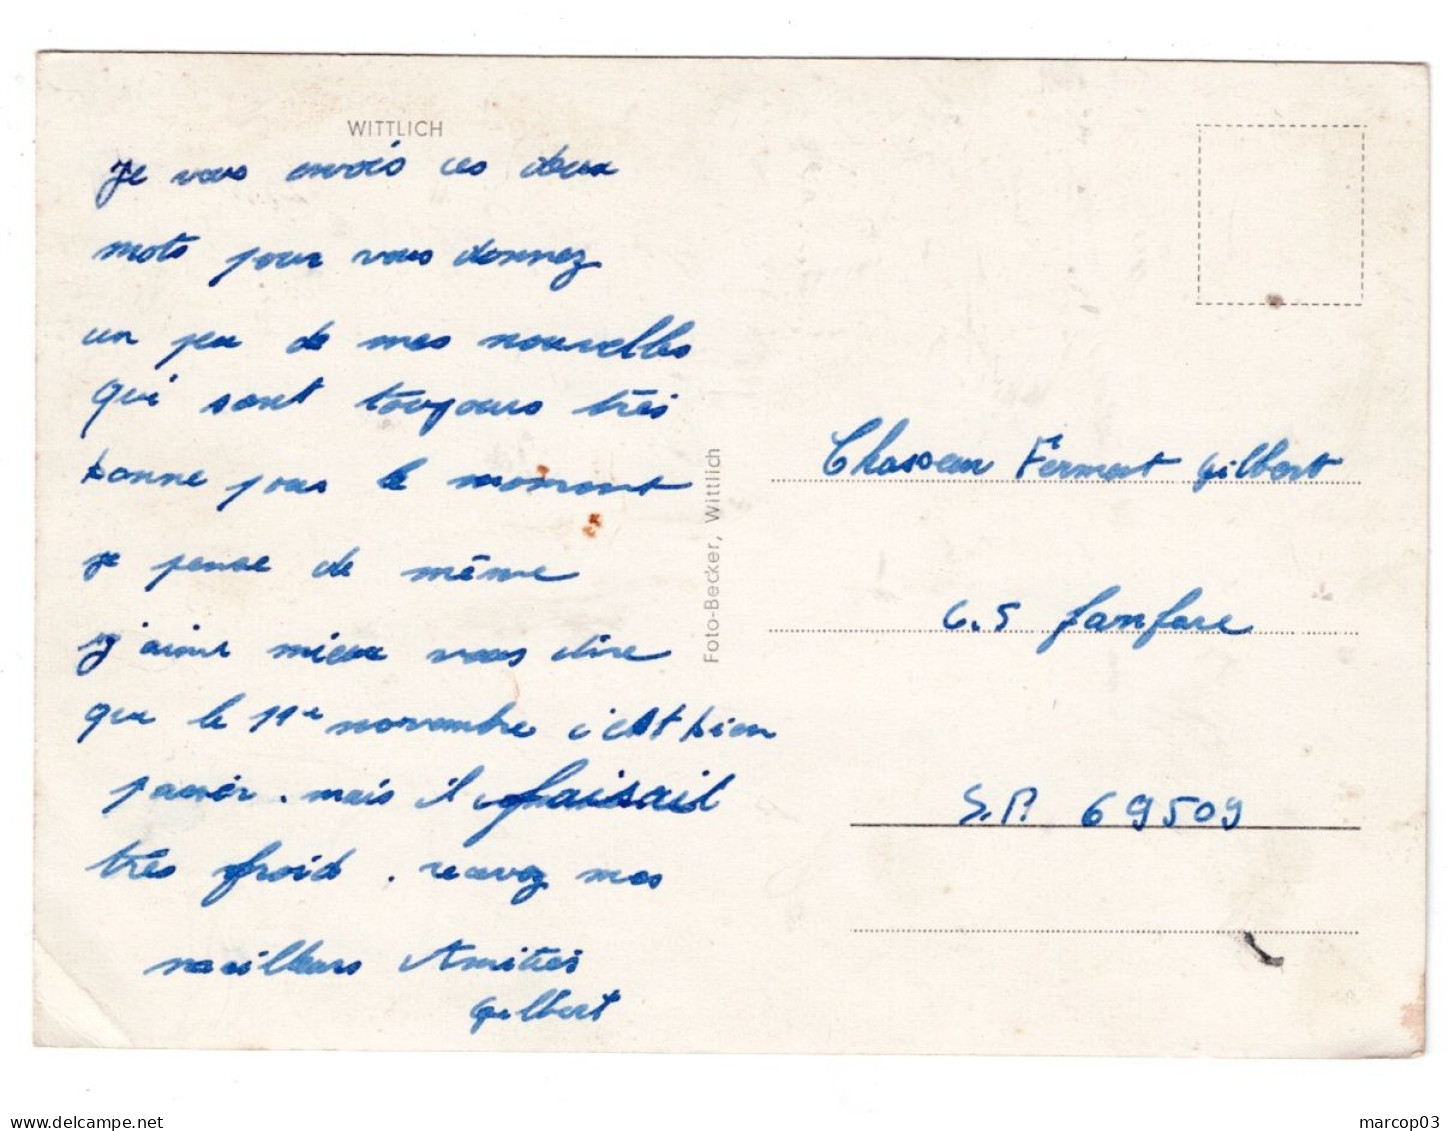 WITTLICH
Je vous envois ces deux
mots pour vous donnez
un peu de mes nouvelles
qui sont toujours très
bonne pour le moment
je pense de même
j'aime mieux vous dire
que le 11e novembre c'est bien
passer. mais il faisait
très froid. recevez mes
meilleurs Amitiés
Gilbert
Foto-Becker, Wittlich
Chasseur Fermert Gilbert
C.S fanfare
S.P. 69509
marcop03